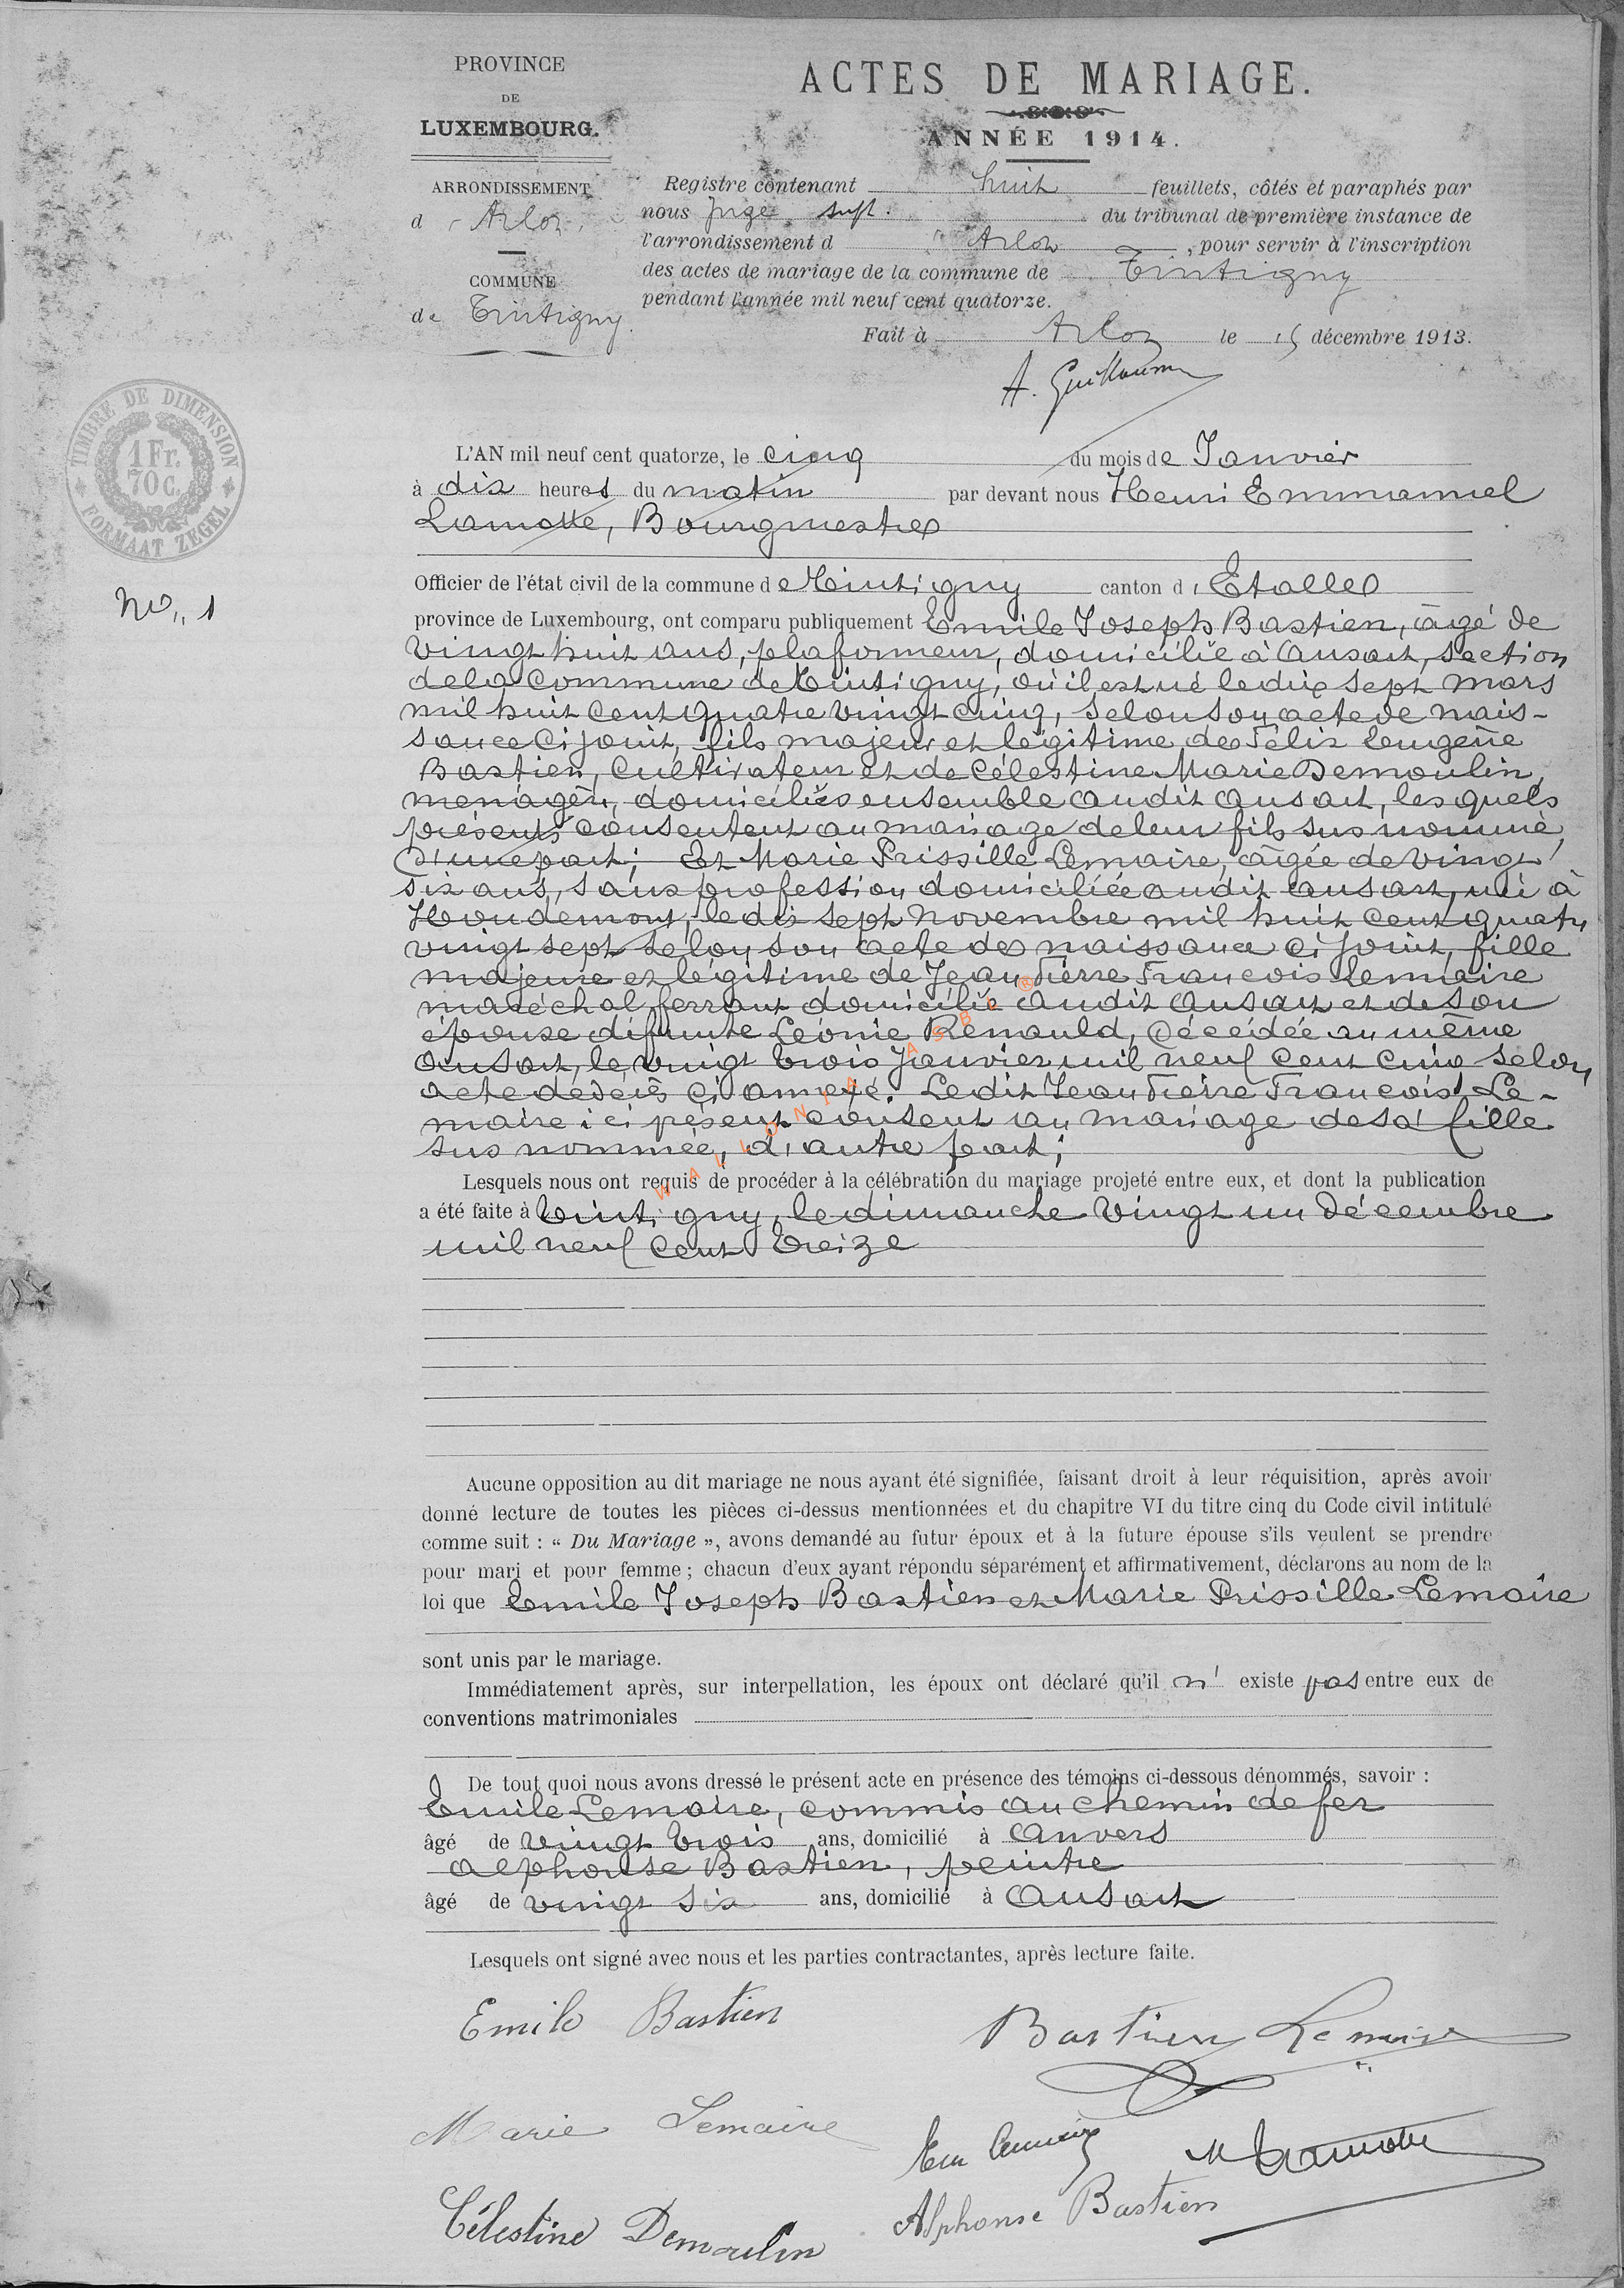 PROVINCE
DE
LUXEMBOURG.
ARRONDISSEMENT
d'Arlon.
COMMUNE
de Tintigny.
ACTES DE MARIAGE.
ANNÉE 1914.
Registre contenant huit feuillets, côtés et paraphés par
nous Juge supt. du tribunal de première instance de
l'arrondissement d'Arlon, pour servir à l'inscription
des actes de mariage de la commune de Tintigny
pendant l'année mil neuf cent quatorze.
Fait à Arlon le 15 décembre 1913.
A. Guillaume
TIMBRE DE DIMENSION
1 Fr.
70 C.
FORMAAT ZEGEL
No,, 1
L'AN mil neuf cent quatorze, le cinq du mois de Janvier
à dix heures du matin par devant nous Henri Emmanuel
Lamotte, Bourgmestre
Officier de l'état civil de la commune de Tintigny canton d'Etalle
province de Luxembourg, ont comparu publiquement Emile Joseph Bastien, âgé de
vingt huit ans, plafonneur, domicilié à Ansart, section
de la commune de Tintigny, où il est né le dix sept Mars
mil huit cent quatre vingt cinq, selon son acte de nais-
sance ci joint, fils majeur et légitime de Félix Eugène
Bastien, cultivateur et de Célestine Marie Demoulin,
ménagère, domiciliés ensemble audit Ansart, lesquels
présents consentent au mariage de leur fils sus nommé,
d'une part; Et Marie Prissille Lemaire, âgée de vingt
six ans, sans profession domiciliée audit Ansart, née à
Houdemont, le dix sept Novembre mil huit cent quatre
vingt sept selon son acte de naissance ci joint, fille
majeure et légitime de Jean Pierre François Lemaire
maréchal ferrant domicilié audit Ansart et de son
épouse défunte Léonie Renauld, décédée au même
Ansart, le vingt trois Janvier mil neuf cent cinq selon
acte de décès ci annexé. Ledit Jean Pierre François Le-
maire ici présent consent au mariage de sa fille
sus nommée, d'autre part;
Lesquels nous ont requis de procéder à la célébration du mariage projeté entre eux, et dont la publication
a été faite à Tintigny, le dimanche vingt un Décembre
mil neuf cent treize
WALLONIA ASBL ®
Aucune opposition au dit mariage ne nous ayant été signifiée, faisant droit à leur réquisition, après avoir
donné lecture de toutes les pièces ci-dessus mentionnées et du chapitre VI du titre cinq du Code civil intitulé
comme suit : « Du Mariage », avons demandé au futur époux et à la future épouse s'ils veulent se prendre
pour mari et pour femme ; chacun d'eux ayant répondu séparément et affirmativement, déclarons au nom de la
loi que Emile Joseph Bastien et Marie Prissille Lemaire
sont unis par le mariage.
Immédiatement après, sur interpellation, les époux ont déclaré qu'il n' existe pas entre eux de
conventions matrimoniales
De tout quoi nous avons dressé le présent acte en présence des témoins ci-dessous dénommés, savoir :
Emile Lemaire, commis au chemin de fer
âgé de vingt trois ans, domicilié à Anvers
Alphonse Bastien, peintre
âgé de vingt six ans, domicilié à Ansart
Lesquels ont signé avec nous et les parties contractantes, après lecture faite.
Emile Bastien
Bastien Lemaire
Marie Lemaire
Em Lemaire
H Lamotte
Célestine Demoulin
Alphonse Bastien